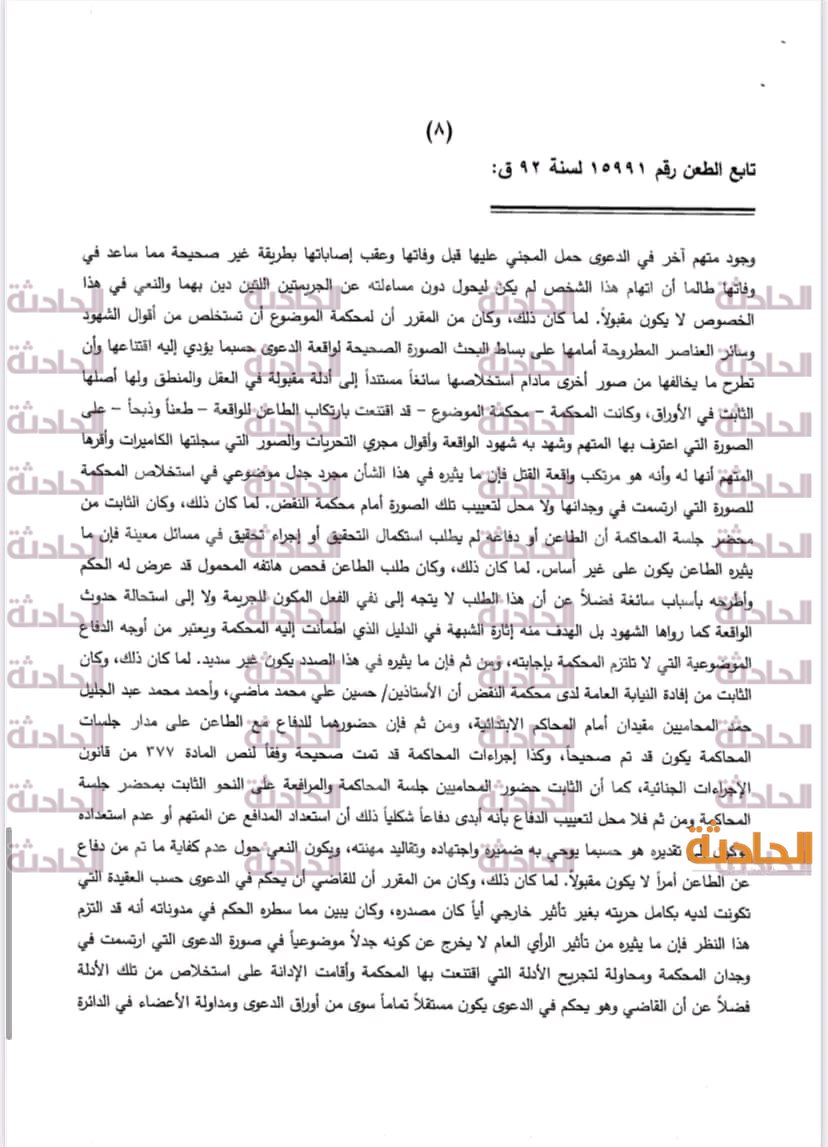 (٨)
تابع الطعن رقم ١٥٩٩١ لسنة ٩٢ ق:
وجود متهم آخر في الدعوى حمل المجني عليها قبل وفاتها وعقب إصاباتها بطريقة غير صحيحة مما ساعد في
وفاتها طالما أن اتهام هذا الشخص لم يكن ليحول دون مساءلته عن الجريمتين اللتين دين بهما والنعي في هذا
الخصوص لا يكون مقبولاً. لما كان ذلك، وكان من المقرر أن لمحكمة الموضوع أن تستخلص من أقوال الشهود
وسائر العناصر المطروحة أمامها على بساط البحث الصورة الصحيحة لواقعة الدعوى حسبما يؤدي إليه اقتناعها وأن
تطرح ما يخالفها من صور أخرى مادام استخلاصها سائغاً مستنداً إلى أدلة مقبولة في العقل والمنطق ولها أصلها
الثابت في الأوراق، وكانت المحكمة – محكمة الموضوع – قد اقتنعت بارتكاب الطاعن للواقعة – طعناً وذبحاً – على
الصورة التي اعترف بها المتهم وشهد به شهود الواقعة وأقوال مجري التحريات والصور التي سجلتها الكاميرات وأقرها
المتهم أنها له وأنه هو مرتكب واقعة القتل فإن ما يثيره في هذا الشأن مجرد جدل موضوعي في استخلاص المحكمة
للصورة التي ارتسمت في وجدانها ولا محل لتعييب تلك الصورة أمام محكمة النقض. لما كان ذلك، وكان الثابت من
محضر جلسة المحاكمة أن الطاعن أو دفاعه لم يطلب استكمال التحقيق أو إجراء تحقيق في مسائل معينة فإن ما
يثيره الطاعن يكون على غير أساس. لما كان ذلك، وكان طلب الطاعن فحص هاتفه المحمول قد عرض له الحكم
وأطرحه بأسباب سائغة فضلاً عن أن هذا الطلب لا يتجه إلى نفي الفعل المكون للجريمة ولا إلى استحالة حدوث
الواقعة كما رواها الشهود بل الهدف منه إثارة الشبهة في الدليل الذي اطمأنت إليه المحكمة ويعتبر من أوجه الدفاع
الموضوعية التي لا تلتزم المحكمة بإجابته، ومن ثم فإن ما يثيره في هذا الصدد يكون غير سديد. لما كان ذلك، وكان
الثابت من إفادة النيابة العامة لدى محكمة النقض أن الأستاذين/ حسين علي محمد ماضي، وأحمد محمد عبد الجليل
حمد المحاميين مقيدان أمام المحاكم الابتدائية، ومن ثم فإن حضورهما للدفاع مع الطاعن على مدار جلسات
المحاكمة يكون قد تم صحيحاً، وكذا إجراءات المحاكمة قد تمت صحيحة وفقاً لنص المادة ٣٧٧ من قانون
الإجراءات الجنائية، كما أن الثابت حضور المحاميين جلسة المحاكمة والمرافعة على النحو الثابت بمحضر جلسة
المحاكمة ومن ثم فلا محل لتعييب الدفاع بأنه أبدى دفاعاً شكلياً ذلك أن استعداد المدافع عن المتهم أو عدم استعداده
تقديره هو حسبما يوحي به ضميره واجتهاده وتقاليد مهنته، ويكون النعي حول عدم كفاية ما تم من دفاع
عن الطاعن أمراً لا يكون مقبولاً. لما كان ذلك، وكان من المقرر أن للقاضي أن يحكم في الدعوى حسب العقيدة التي
تكونت لديه بكامل حريته بغير تأثير خارجي أياً كان مصدره، وكان يبين مما سطره الحكم في مدوناته أنه قد التزم
هذا النظر فإن ما يثيره من تأثير الرأي العام لا يخرج عن كونه جدلاً موضوعياً في صورة الدعوى التي ارتسمت في
وجدان المحكمة ومحاولة لتجريح الأدلة التي اقتنعت بها المحكمة وأقامت الإدانة على استخلاص من تلك الأدلة
فضلاً عن أن القاضي وهو يحكم في الدعوى يكون مستقلاً تماماً سوى من أوراق الدعوى ومداولة الأعضاء في الدائرة
الحادثة